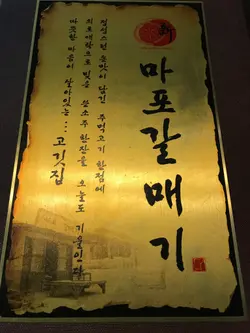 新
마포갈매기
정성스런 손맛이 담긴 주먹고기 한점에
희로애락으로 빚은 쓴소주 한잔을 오늘도 기울인다
따뜻한 마음이 살아있는... 고깃집